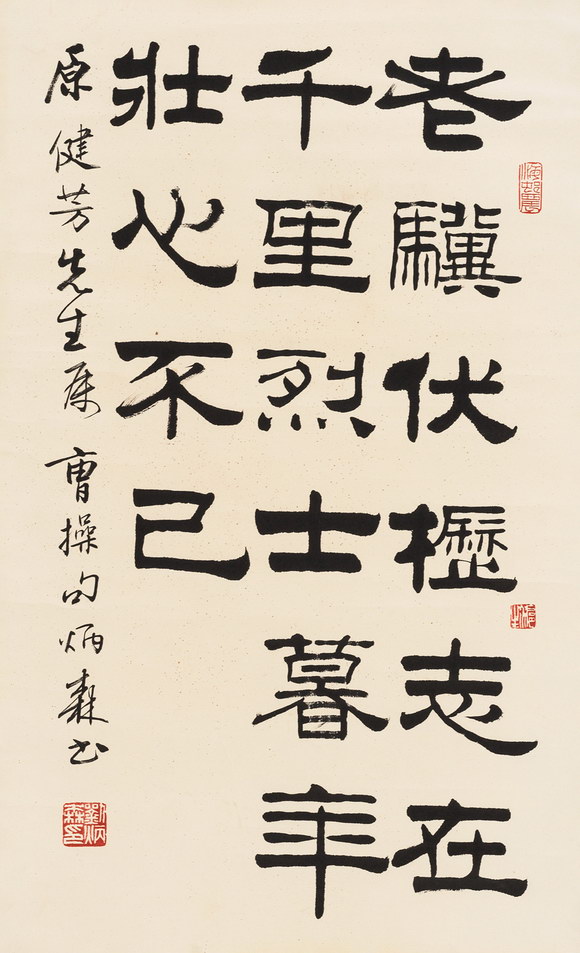 老驥伏櫪志在
千里烈士暮年
壯心不已
原健芳先生属 曹操句炳森书
劉炳森印